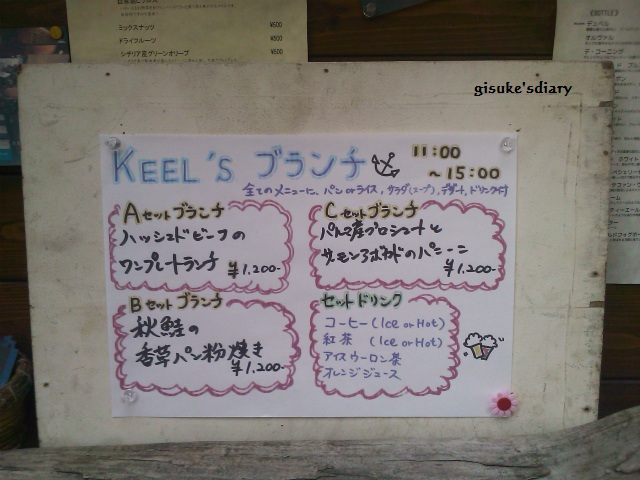 ミックスナッツ ¥600
ドライフルーツ ¥600
シチリア産グリーンオリーブ ¥600
【BOTTLE】
デュベル
オルヴァル
gisuke'sdiary
KEEL'S ブランチ
11:00
~15:00
全てのメニューに、パンorライス、サラダ(スープ)、デザート、ドリンク付
Aセットブランチ
ハッシュドビーフの
ワンプレートランチ
¥1,200-
Bセットブランチ
秋鮭の
香草パン粉焼き
¥1,200-
Cセットブランチ
パルマ産プロシュートと
サーモンアボカドのパニーニ
¥1,200-
セットドリンク
コーヒー(Ice or Hot)
紅茶 (Ice or Hot)
アイスウーロン茶
オレンジジュース